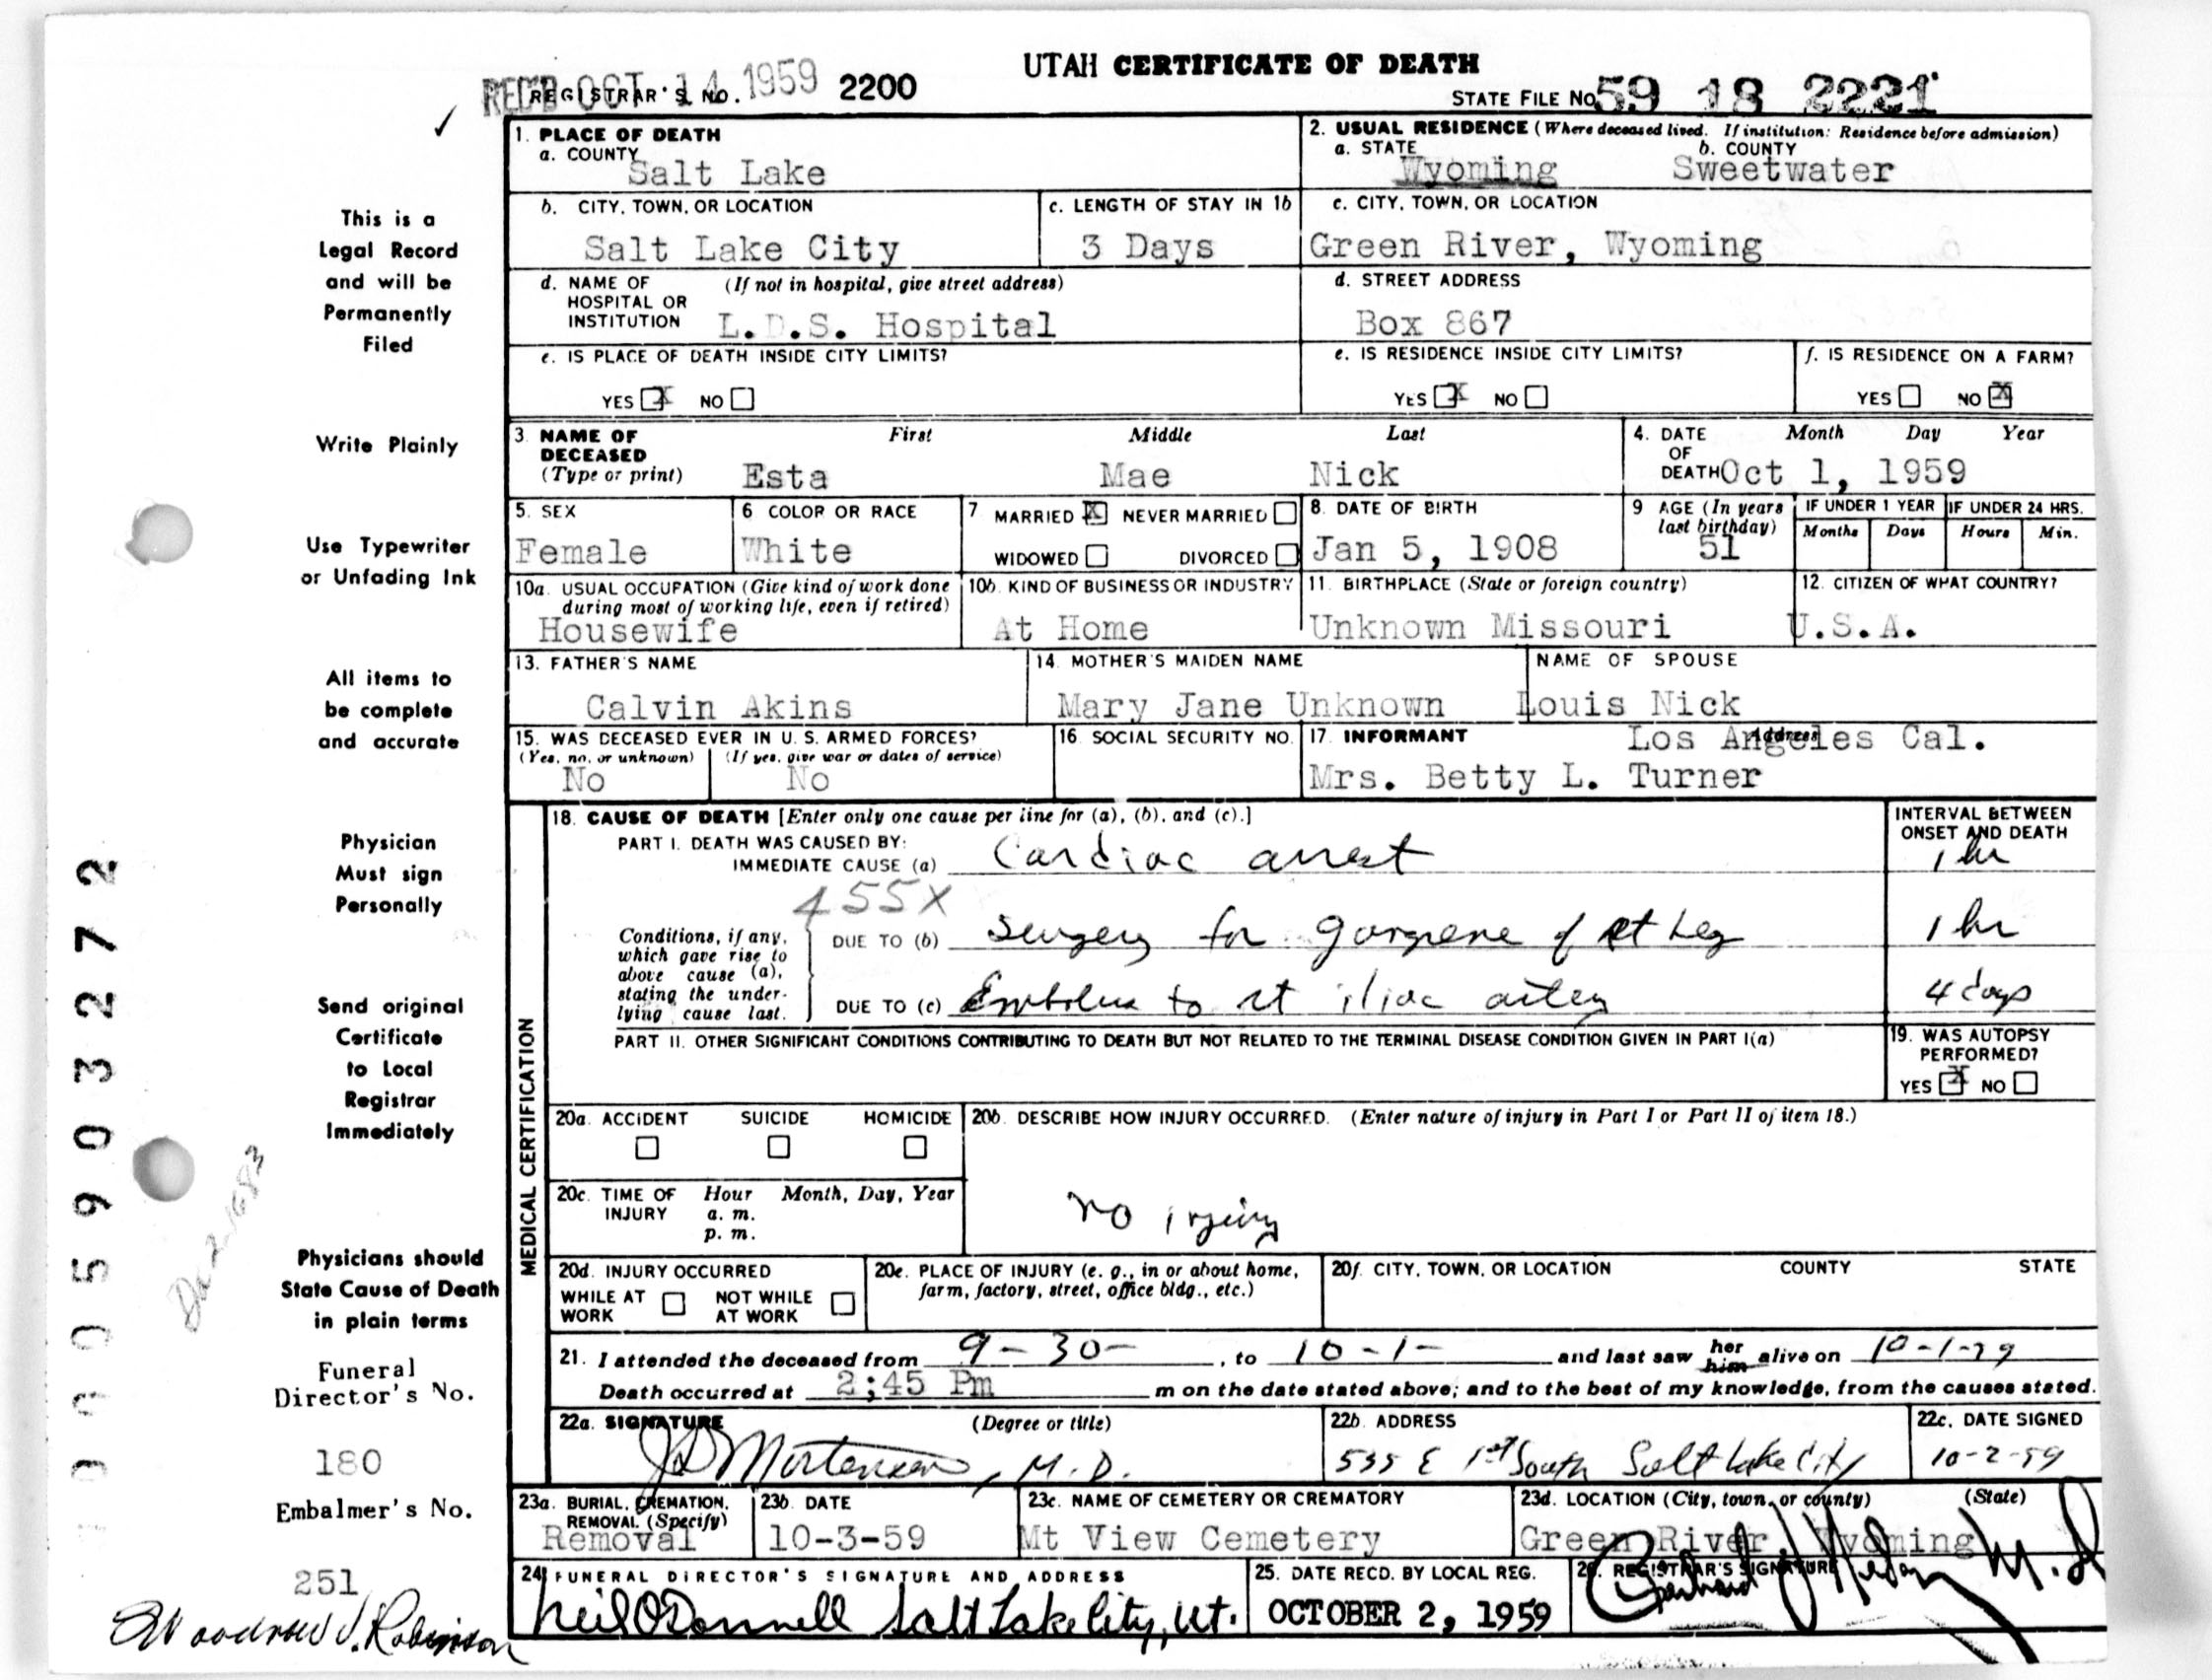 UTAH CERTIFICATE OF DEATH
REC'D OCT 14 1959
REGISTRAR'S NO. 2200
STATE FILE NO. 59 18 2221
✓
1. PLACE OF DEATH
a. COUNTY
Salt Lake
2. USUAL RESIDENCE (Where deceased lived. If institution: Residence before admission)
a. STATE b. COUNTY
Wyoming Sweetwater
b. CITY, TOWN, OR LOCATION
Salt Lake City
c. LENGTH OF STAY IN 1b
3 Days
c. CITY, TOWN, OR LOCATION
Green River, Wyoming
d. NAME OF HOSPITAL OR INSTITUTION (If not in hospital, give street address)
L.D.S. Hospital
d. STREET ADDRESS
Box 867
e. IS PLACE OF DEATH INSIDE CITY LIMITS?
YES X NO
e. IS RESIDENCE INSIDE CITY LIMITS?
YES X NO
f. IS RESIDENCE ON A FARM?
YES NO X
3. NAME OF DECEASED (Type or print)
First Middle Last
Esta Mae Nick
4. DATE OF DEATH Month Day Year
Oct 1, 1959
5. SEX
Female
6 COLOR OR RACE
White
7 MARRIED X NEVER MARRIED
WIDOWED DIVORCED
8. DATE OF BIRTH
Jan 5, 1908
9 AGE (In years last birthday)
51
IF UNDER 1 YEAR
Months Days
IF UNDER 24 HRS.
Hours Min.
10a. USUAL OCCUPATION (Give kind of work done during most of working life, even if retired)
Housewife
10b. KIND OF BUSINESS OR INDUSTRY
At Home
11. BIRTHPLACE (State or foreign country)
Unknown Missouri
12. CITIZEN OF WHAT COUNTRY?
U.S.A.
13. FATHER'S NAME
Calvin Akins
14. MOTHER'S MAIDEN NAME
Mary Jane Unknown
NAME OF SPOUSE
Louis Nick
15. WAS DECEASED EVER IN U. S. ARMED FORCES?
(Yes, no, or unknown) (If yes, give war or dates of service)
No No
16. SOCIAL SECURITY NO.
17. INFORMANT Address
Los Angeles Cal.
Mrs. Betty L. Turner
MEDICAL CERTIFICATION
18. CAUSE OF DEATH [Enter only one cause per line for (a), (b), and (c).]
INTERVAL BETWEEN ONSET AND DEATH
PART I. DEATH WAS CAUSED BY:
IMMEDIATE CAUSE (a) Cardiac arrest 1 hr
455X
Conditions, if any, which gave rise to above cause (a), stating the underlying cause last.
DUE TO (b) Surgery for gangrene of rt leg 1 hr
DUE TO (c) Embolus to rt iliac artery 4 days
PART II. OTHER SIGNIFICANT CONDITIONS CONTRIBUTING TO DEATH BUT NOT RELATED TO THE TERMINAL DISEASE CONDITION GIVEN IN PART I(a)
19. WAS AUTOPSY PERFORMED?
YES X NO
20a. ACCIDENT SUICIDE HOMICIDE
20b. DESCRIBE HOW INJURY OCCURRED. (Enter nature of injury in Part I or Part II of item 18.)
no injury
20c. TIME OF INJURY Hour Month, Day, Year
a. m.
p. m.
20d. INJURY OCCURRED
WHILE AT WORK NOT WHILE AT WORK
20e. PLACE OF INJURY (e. g., in or about home, farm, factory, street, office bldg., etc.)
20f. CITY, TOWN, OR LOCATION COUNTY STATE
21. I attended the deceased from 9-30- , to 10-1- and last saw her him alive on 10-1-59
Death occurred at 2;45 Pm m on the date stated above; and to the best of my knowledge, from the causes stated.
22a. SIGNATURE (Degree or title)
JD Mortensen, M.D.
22b. ADDRESS
535 E 1st South Salt Lake City
22c. DATE SIGNED
10-2-59
23a. BURIAL, CREMATION, REMOVAL (Specify)
Removal
23b. DATE
10-3-59
23c. NAME OF CEMETERY OR CREMATORY
Mt View Cemetery
23d. LOCATION (City, town, or county) (State)
Green River Wyoming
24 FUNERAL DIRECTOR'S SIGNATURE AND ADDRESS
Neil O'Donnell Salt Lake City, Ut.
25. DATE RECD. BY LOCAL REG.
OCTOBER 2, 1959
26. REGISTRAR'S SIGNATURE
M.D.
This is a
Legal Record
and will be
Permanently
Filed
Write Plainly
Use Typewriter
or Unfading Ink
All items to
be complete
and accurate
Physician
Must sign
Personally
Send original
Certificate
to Local
Registrar
Immediately
Physicians should
State Cause of Death
in plain terms
Funeral
Director's No.
180
Embalmer's No.
251
Woodrow J. Robinson
005903272